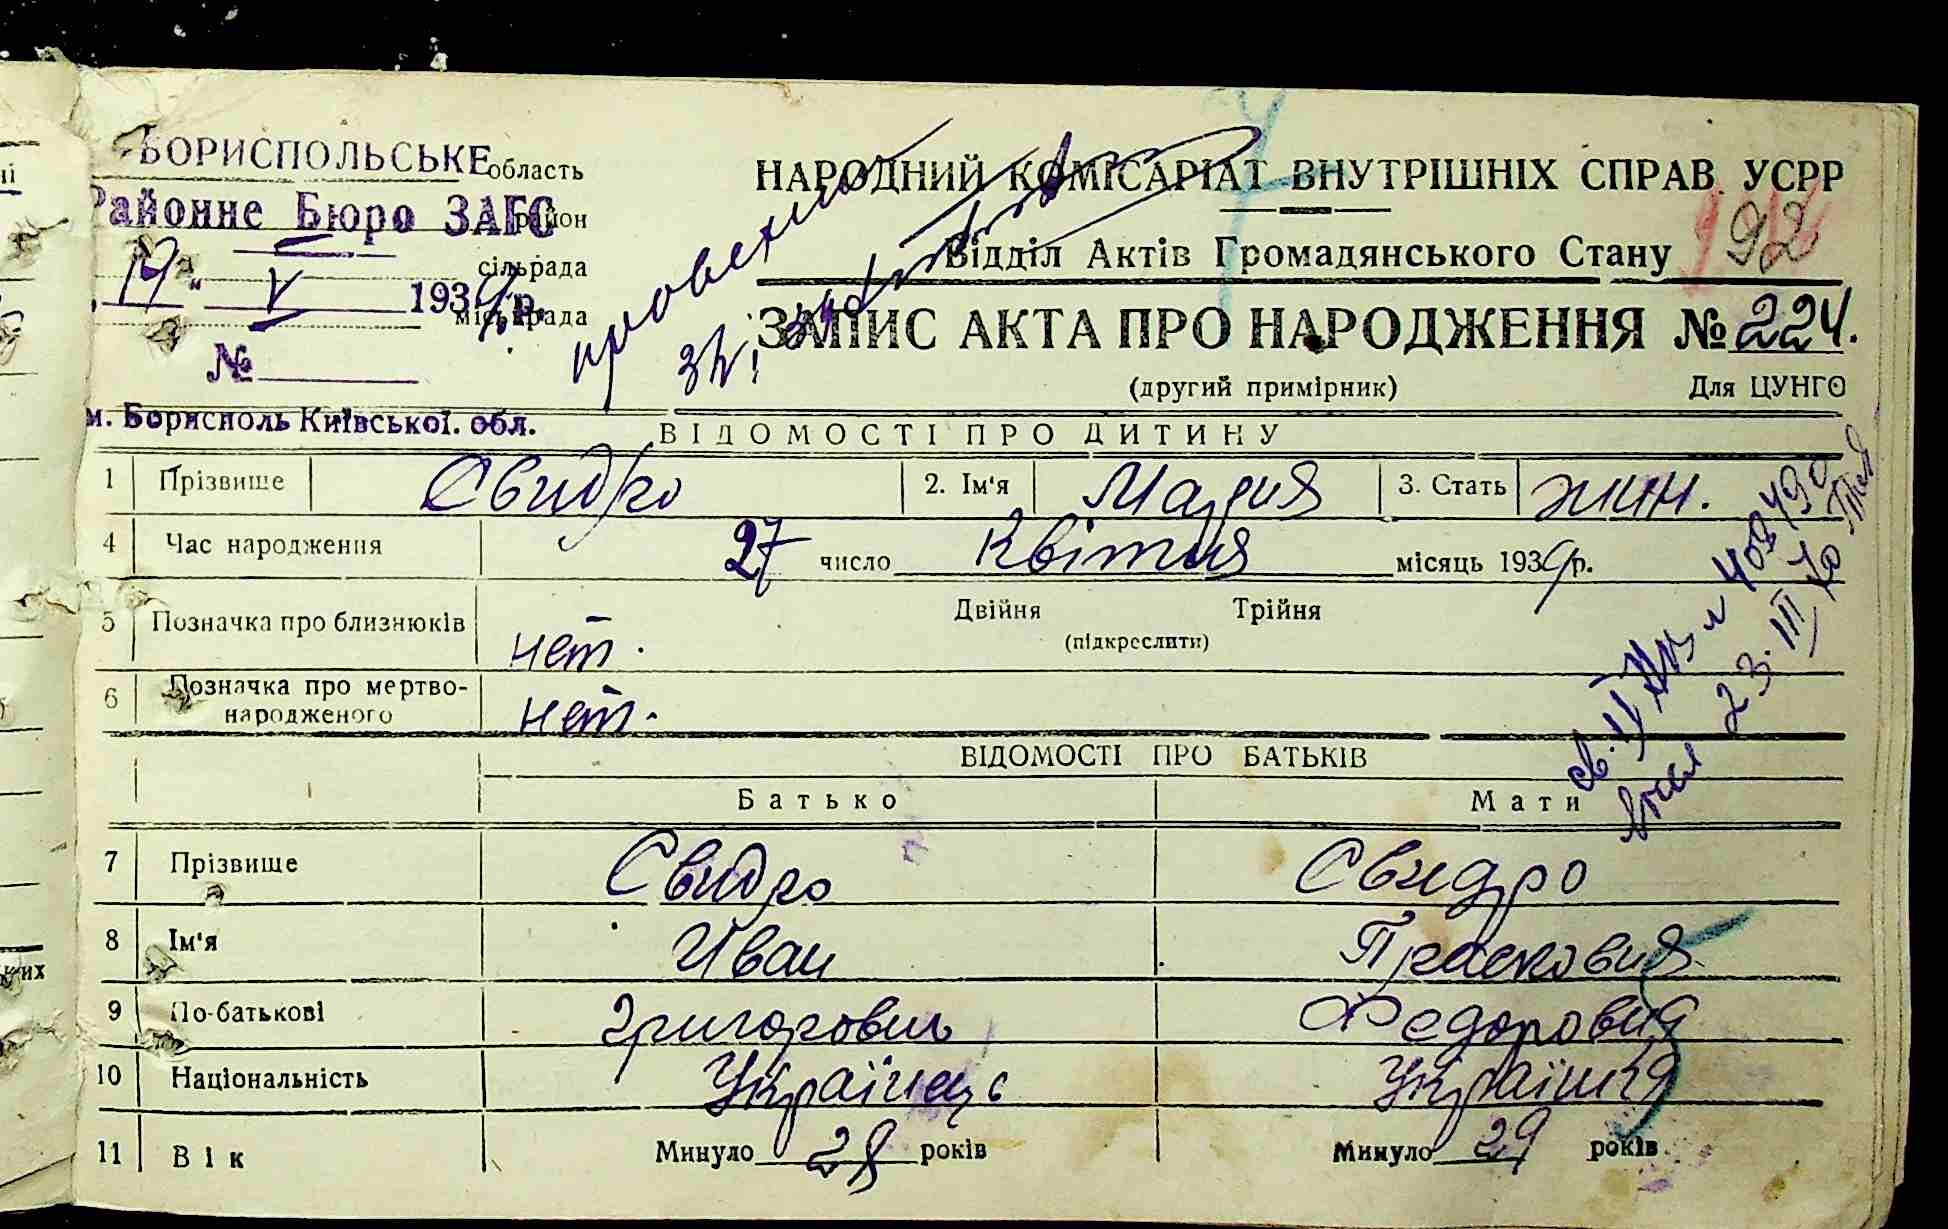 БОРИСПОЛЬСЬКЕ область
Районне Бюро ЗАГС район
сільрада
„19“ V 1939 р.
міськрада
№
м. Борисполь Київської. обл.
НАРОДНИЙ КОМІСАРІАТ ВНУТРІШНІХ СПРАВ УСРР
92
Відділ Актів Громадянського Стану
ЗАПИС АКТА ПРО НАРОДЖЕННЯ № 224.
(другий примірник) Для ЦУНГО
ВІДОМОСТІ ПРО ДИТИНУ
1 Прізвище Свидро 2. Ім'я Мария 3. Стать жин.
4 Час народження 27 число Квітня місяць 1939 р.
5 Позначка про близнюків нет. Двійня Трійня
(підкреслити)
6 Позначка про мертво-
народженого нет.
ВІДОМОСТІ ПРО БАТЬКІВ
Батько Мати
7 Прізвище Свидро Свидро
8 Ім'я Иван Прасковия
9 По-батькові Григорович Федоровна
10 Національність Українець Українка
11 Вік Минуло 28 років Минуло 29 років
23.III